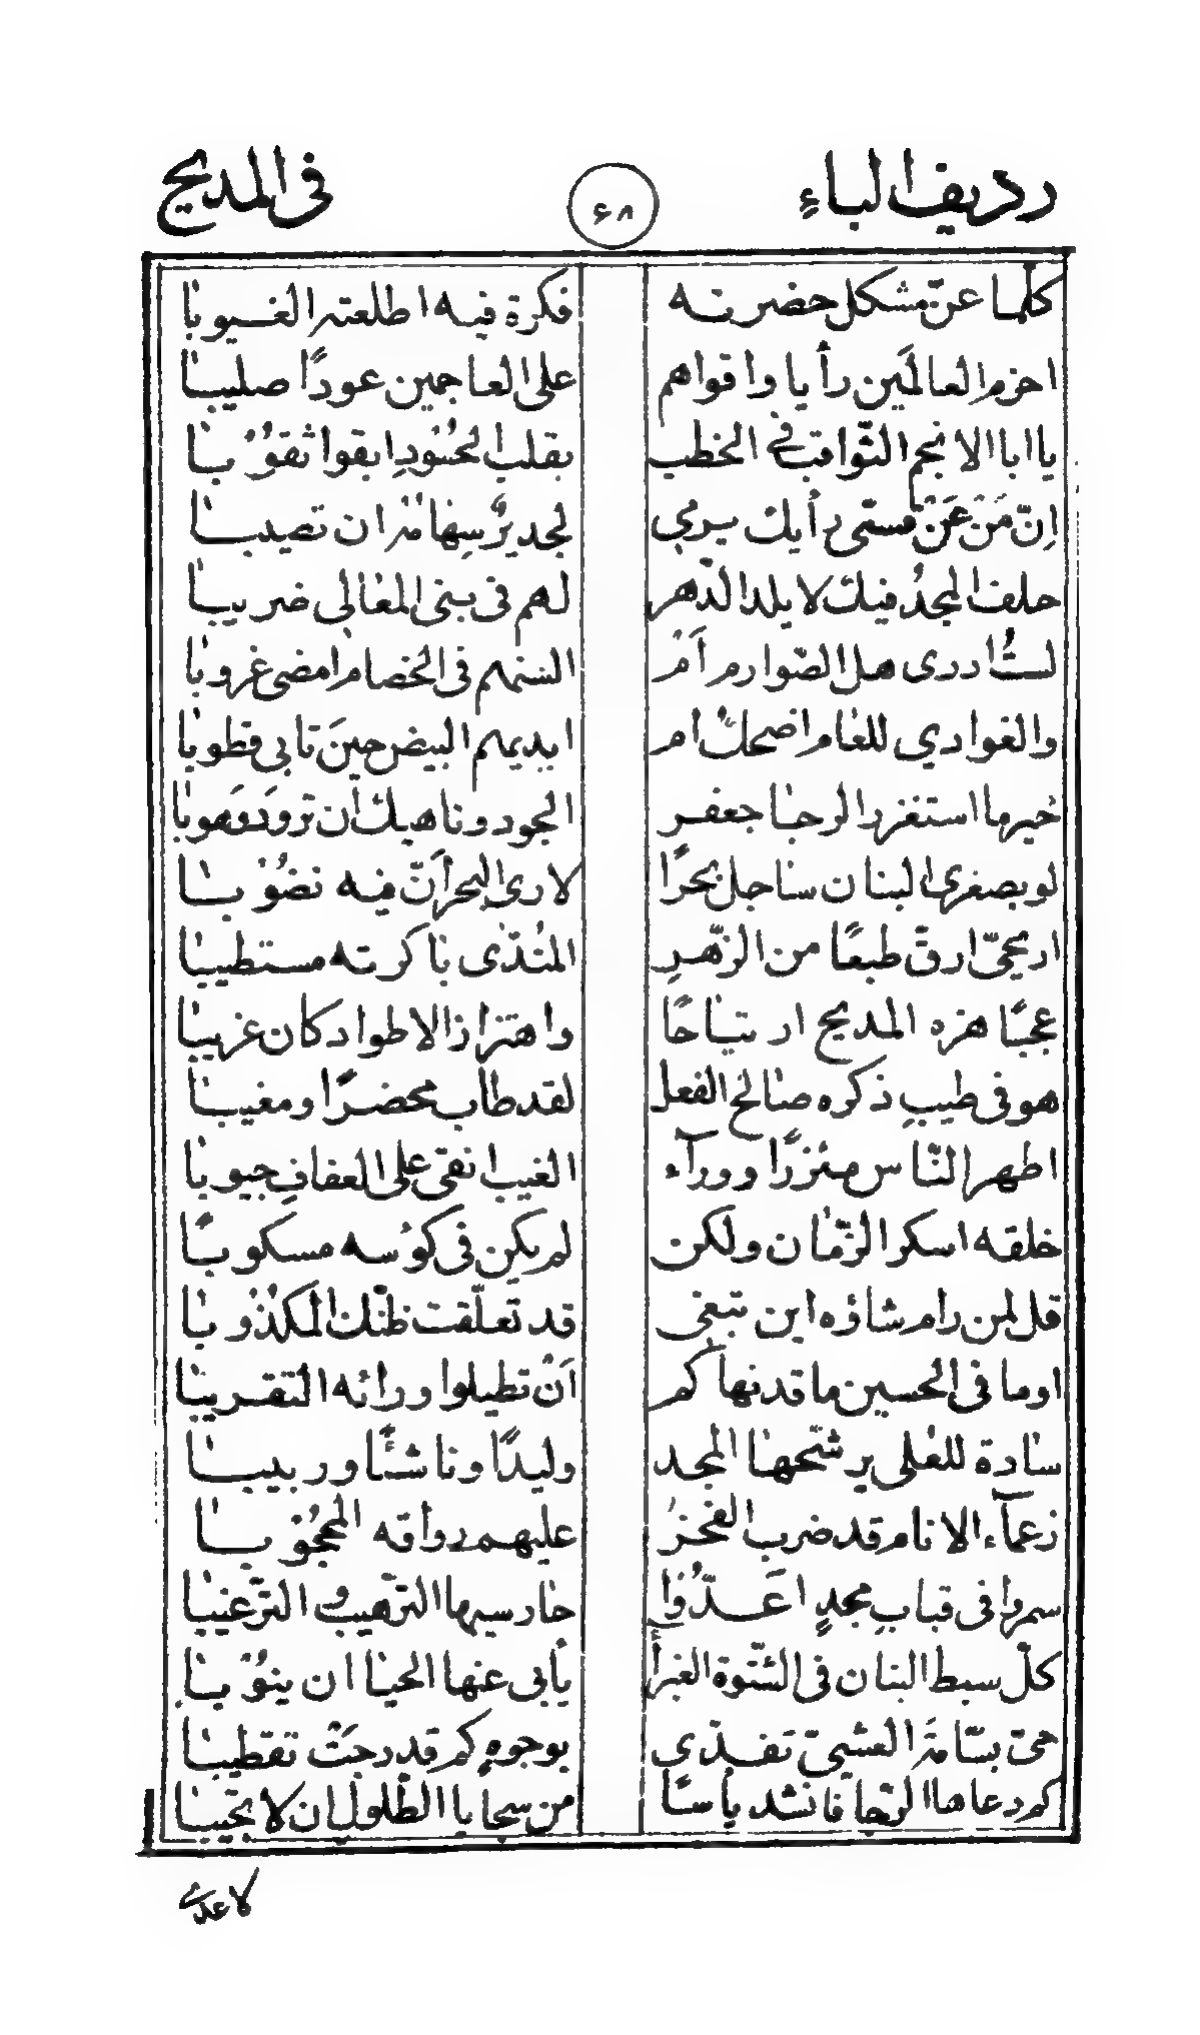 رديف الباءِ ٦٨ في المديح
كلما عنّ مشكل حضرته فكرة فيه اطلعته الغيوبا
احزم العالمَين رأيا واقواهم على العاجمين عودًا صليبا
يا ابا الانجم الثّواقب في الخطب بقلب الحسُودِ ابقوا ثقوُبا
اِنّ مَنْ عَنْ قسىّ رأيك يرمي لجديرٌ سهامه ان تصيبا
حلف المجدُ فيك لا يلد الدّهر لهم في بنى المعالى ضريبا
لستُ ادرى هل الصّوارم اَمْ السنهم في الخصام امضى غروبا
والغوادي للعام اضحكْ ام ايديهم البيض حينَ تابى قطوبا
خيرما استغزر الرجا جعفر الجود وناهيك ان ترودَ وَهوبا
لو بصغرى البنان ساجل بحرًا لارى البحرَ أنّ فيه نضُوبا
اريحيّ ارقّ طبعًا من الزّهرِ المندّى باكرته مستطيبا
عجبًا هزه المديح ارتياحًا واهتزاز الاطواد كان عزيبا
هو في طيبِ ذكره صالح الفعل لقد طاب محضرًا ومغيبا
اطهر النّاس مئزرًا وورآء الغيب انقى على العفافِ جيوبا
خلقه اسكر الزّمان ولكن لم يكن في كؤسه مسكوبًا
قل لمن رام شاؤه اين تبغى قد تعلّقت ظنّك المكذُوبا
اوما في الحسين ما قد نهاكم اَنْ تطيلوا ورائه التقريبا
سادة للعُلى يرشّحها المجد وليدًا وناشئًا وربيبا
زعمآء الانام قد ضرب الفخر عليهم رواقه المحجُوبا
سمروا في قبابِ مجدٍ اَعَدُّوا حارسيها الترّهيب والترّغيبا
كلّ سبط البنان في الشّتوة الغبرأ يأبى عنها الحيا ان ينوُبا
هىّ بسّامةَ العشىّ تفدّى بوجوهٍ كم قد دجَتْ تقطيبا
كم دعاها الرّجا فانشد يأسًا من سجايا الطّلول ان لا تجيبا
لا عدى